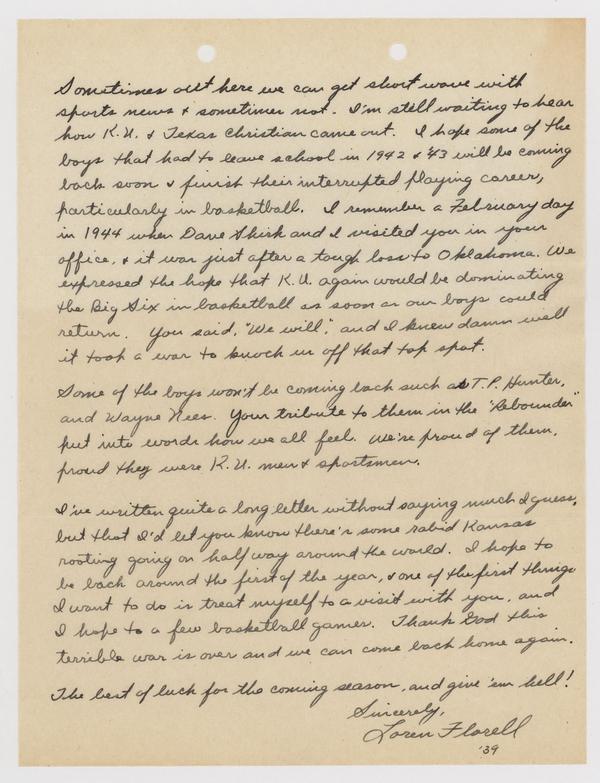 Sometimes out here we can get short wave with
sports news & sometimes not. I'm still waiting to hear
how K.U. & Texas Christian came out. I hope some of the
boys that had to leave school in 1942 & '43 will be coming
back soon & finish their interrupted playing career,
particularly in basketball. I remember a February day
in 1944 when Dave Shirk and I visited you in your
office, & it was just after a tough loss to Oklahoma. We
expressed the hope that K.U. again would be dominating
the Big Six in basketball as soon as our boys could
return. You said, "We will," and I knew damn well
it took a war to knock us off that top spot.
Some of the boys won't be coming back such as T.P. Hunter,
and Wayne Nees. Your tribute to them in the "Rebounder"
put into words how we all feel. We're proud of them,
proud they were K.U. men & sportsmen.
I've written quite a long letter without saying much I guess,
but that I'd let you know there's some rabid Kansas
rooting going on half way around the world. I hope to
be back around the first of the year, & one of the first things
I want to do is treat myself to a visit with you, and
I hope to a few basketball games. Thank God this
terrible war is over and we can come back home again.
The best of luck for the coming season, and give 'em hell!
Sincerely,
Loren Florell
'39